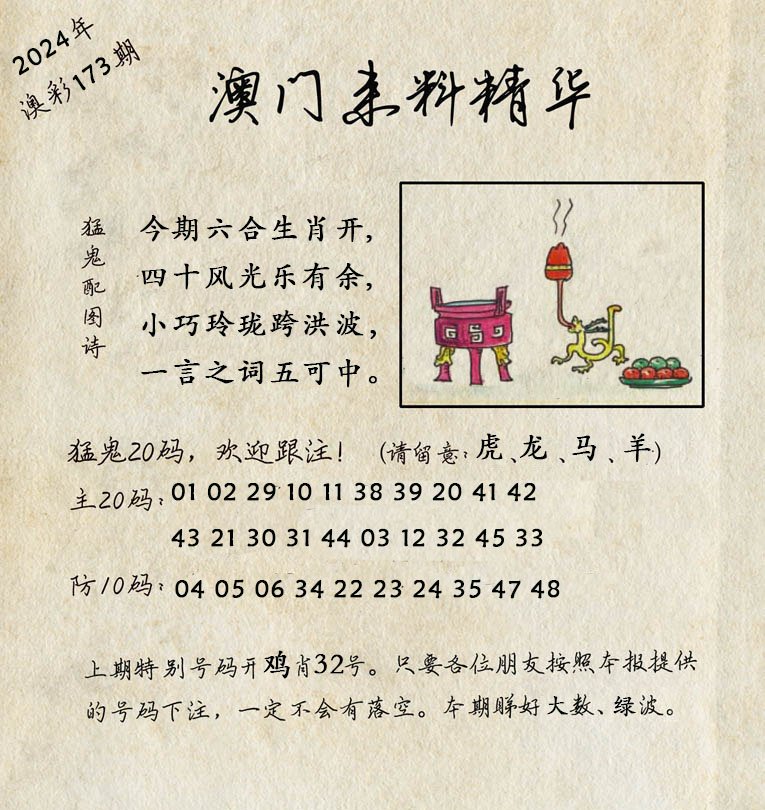 2024年
澳彩173期
澳门来料精华
猛鬼配图诗
今期六合生肖开,
四十风光乐有余,
小巧玲珑跨洪波，
一言之词五可中。
猛鬼20码，欢迎跟注！(请留意：虎、龙、马、羊)
主20码：01 02 29 10 11 38 39 20 41 42
43 21 30 31 44 03 12 32 45 33
防10码：04 05 06 34 22 23 24 35 47 48
上期特别号码开鸡肖32号。只要各位朋友按照本报提供
的号码下注，一定不会有落空。本期睇好大数、绿波。